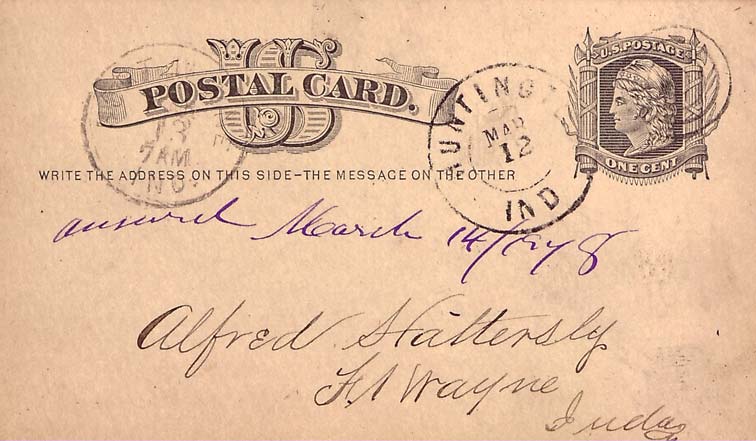 US
POSTAL CARD.
U.S. POSTAGE
ONE CENT
HUNTINGT
MAR
12
IND
13
7 AM
IND.
WRITE THE ADDRESS ON THIS SIDE–THE MESSAGE ON THE OTHER
answerd March 14/1878
Alfred Hattersly
Ft Wayne
Inda